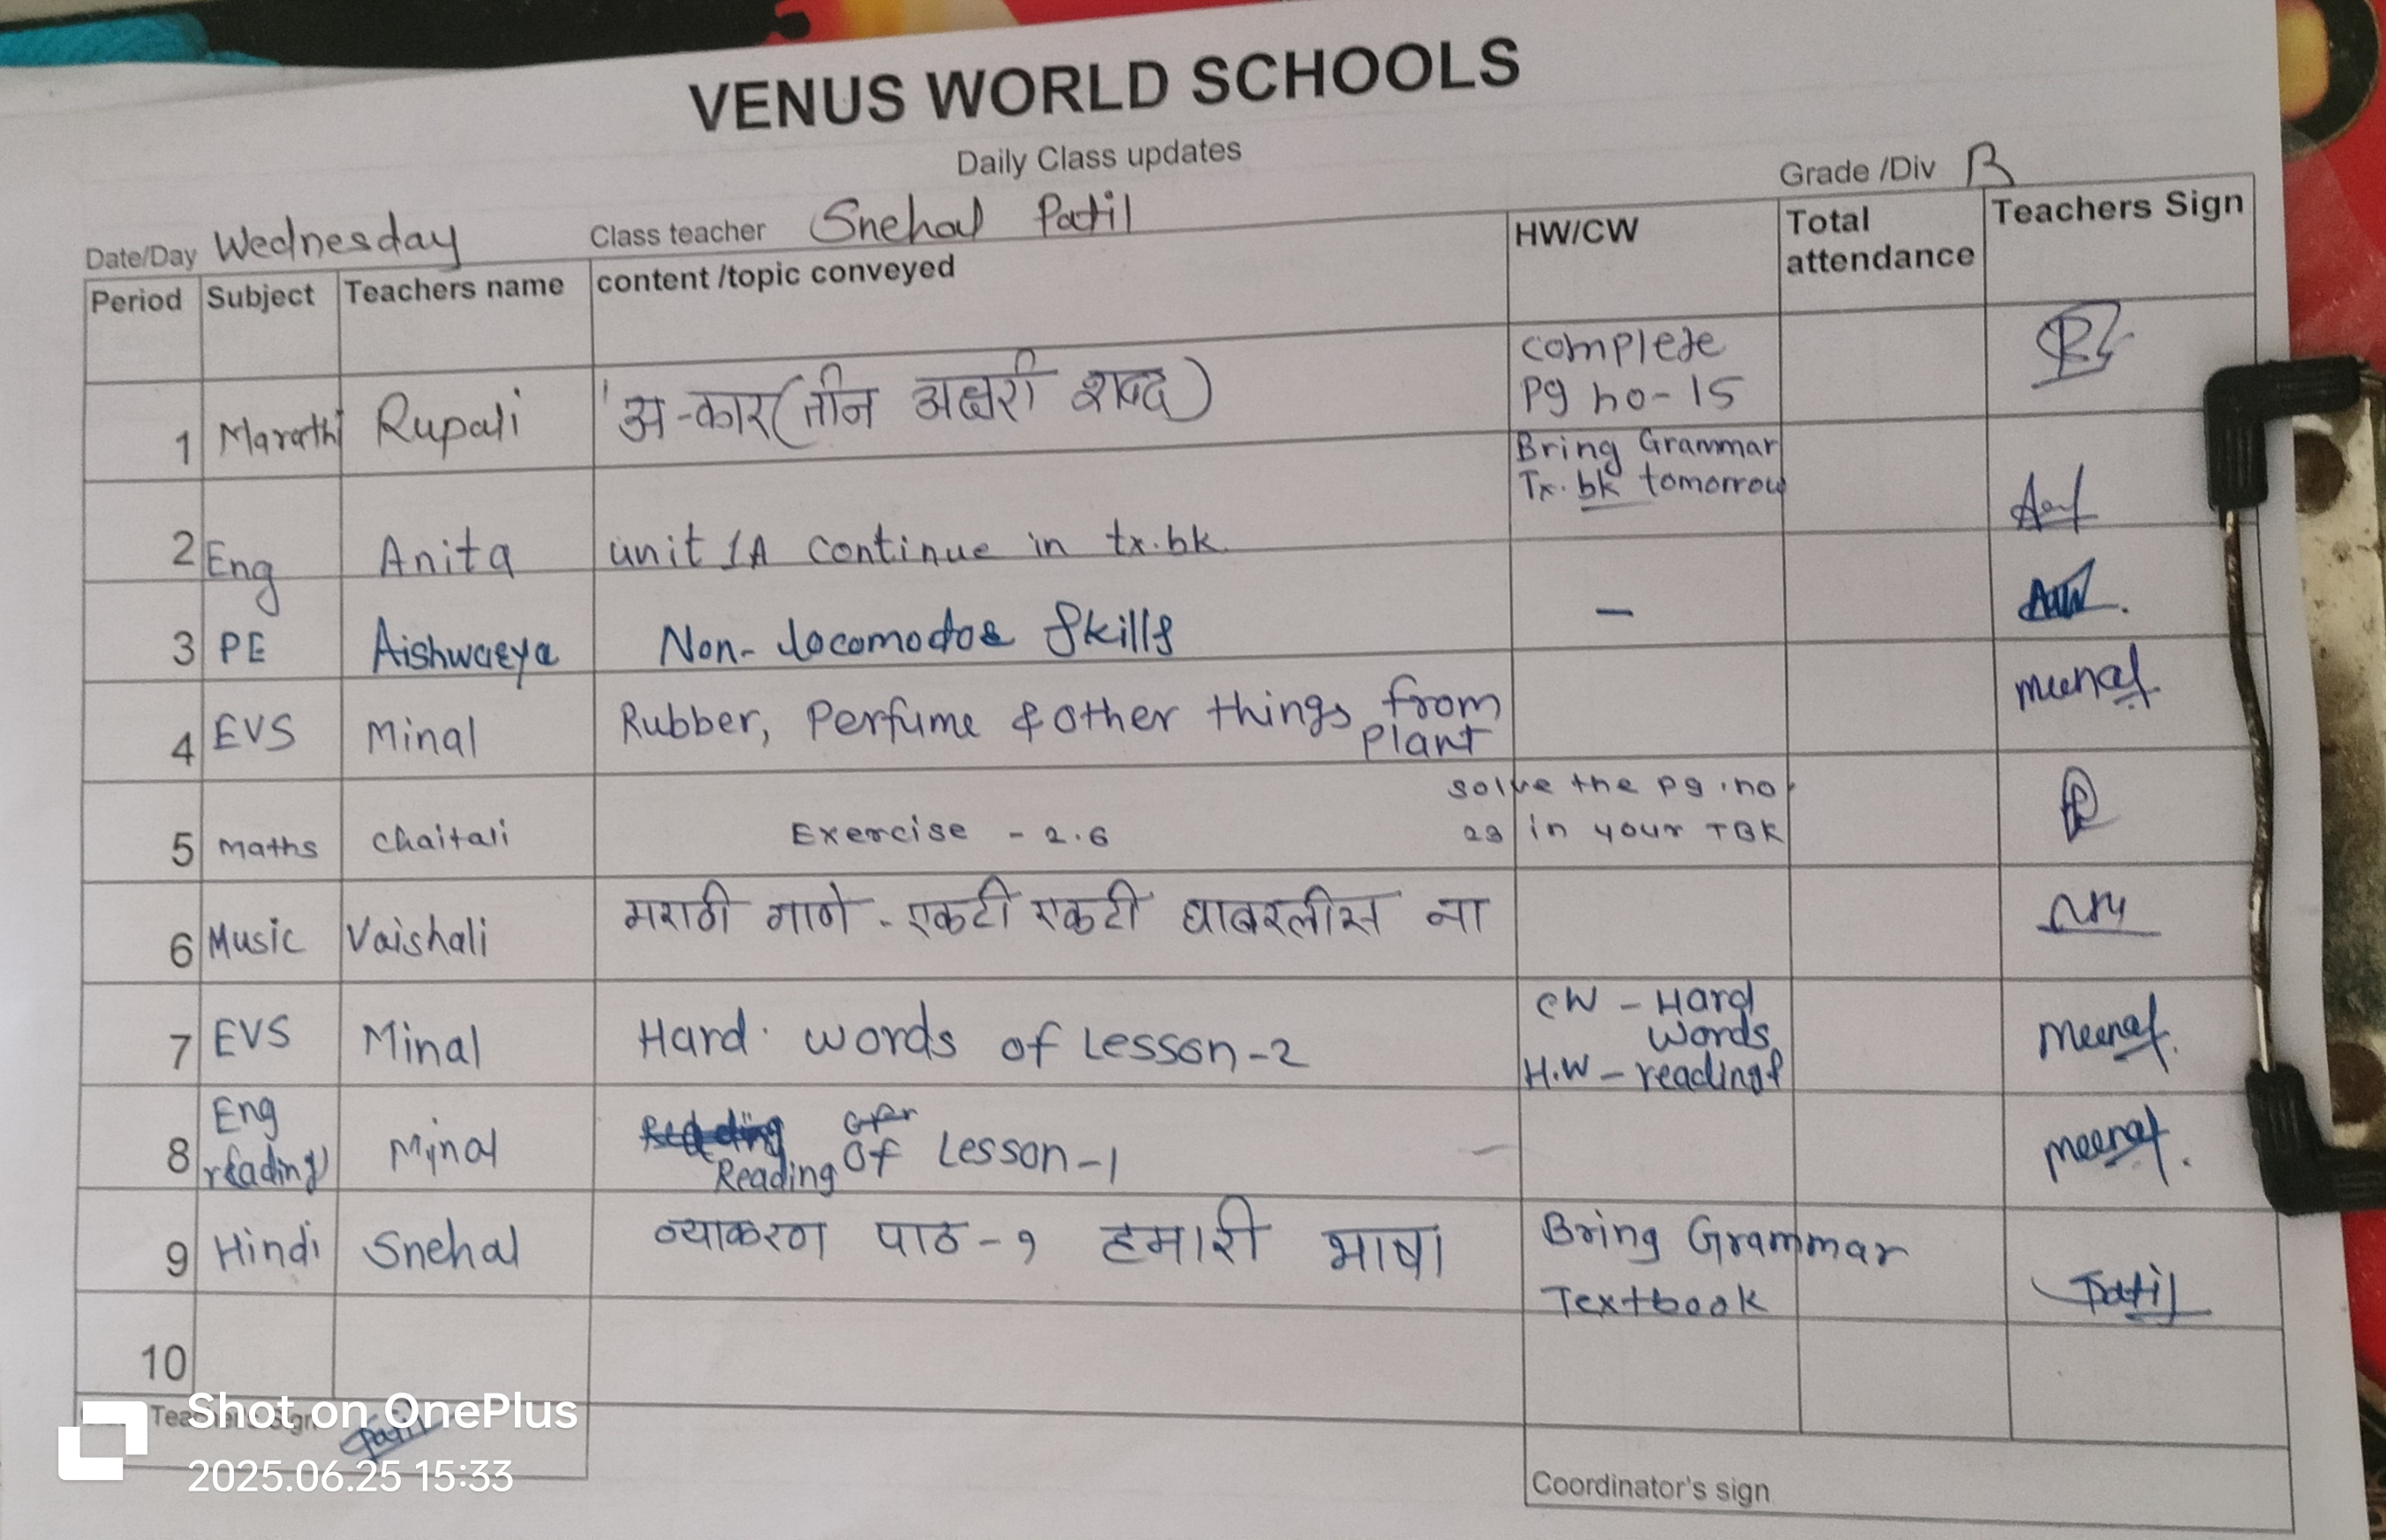 VENUS WORLD SCHOOLS
Daily Class updates
Grade /Div B
Date/Day Wednesday Class teacher Snehal Patil
Period Subject Teachers name content /topic conveyed HW/CW Total attendance Teachers Sign
1 Marathi Rupali 'अ-कार (तीन अक्षरी शब्द) complete
Pg no-15
2 Eng Anita unit 1A continue in tx.bk Bring Grammar
Tx.bk tomorrow
3 PE Aishwarya Non-locomodor Skills -
4 EVS Minal Rubber, Perfume & other things from
Plant
5 Maths Chaitali Exercise - 2.6 solve the pg.no
23 in your TBK
6 Music Vaishali मराठी गाणे - एकटी एकटी घाबरलीस ना
7 EVS Minal Hard words of Lesson-2 CW - Hard
words
H.W - reading
8 Eng
reading Minal Reading of Lesson-1
9 Hindi Snehal व्याकरण पाठ-१ हमारी भाषा Bring Grammar
Textbook Patil
10
Sign Patil
Coordinator's sign
Shot on OnePlus
2025.06.25 15:33